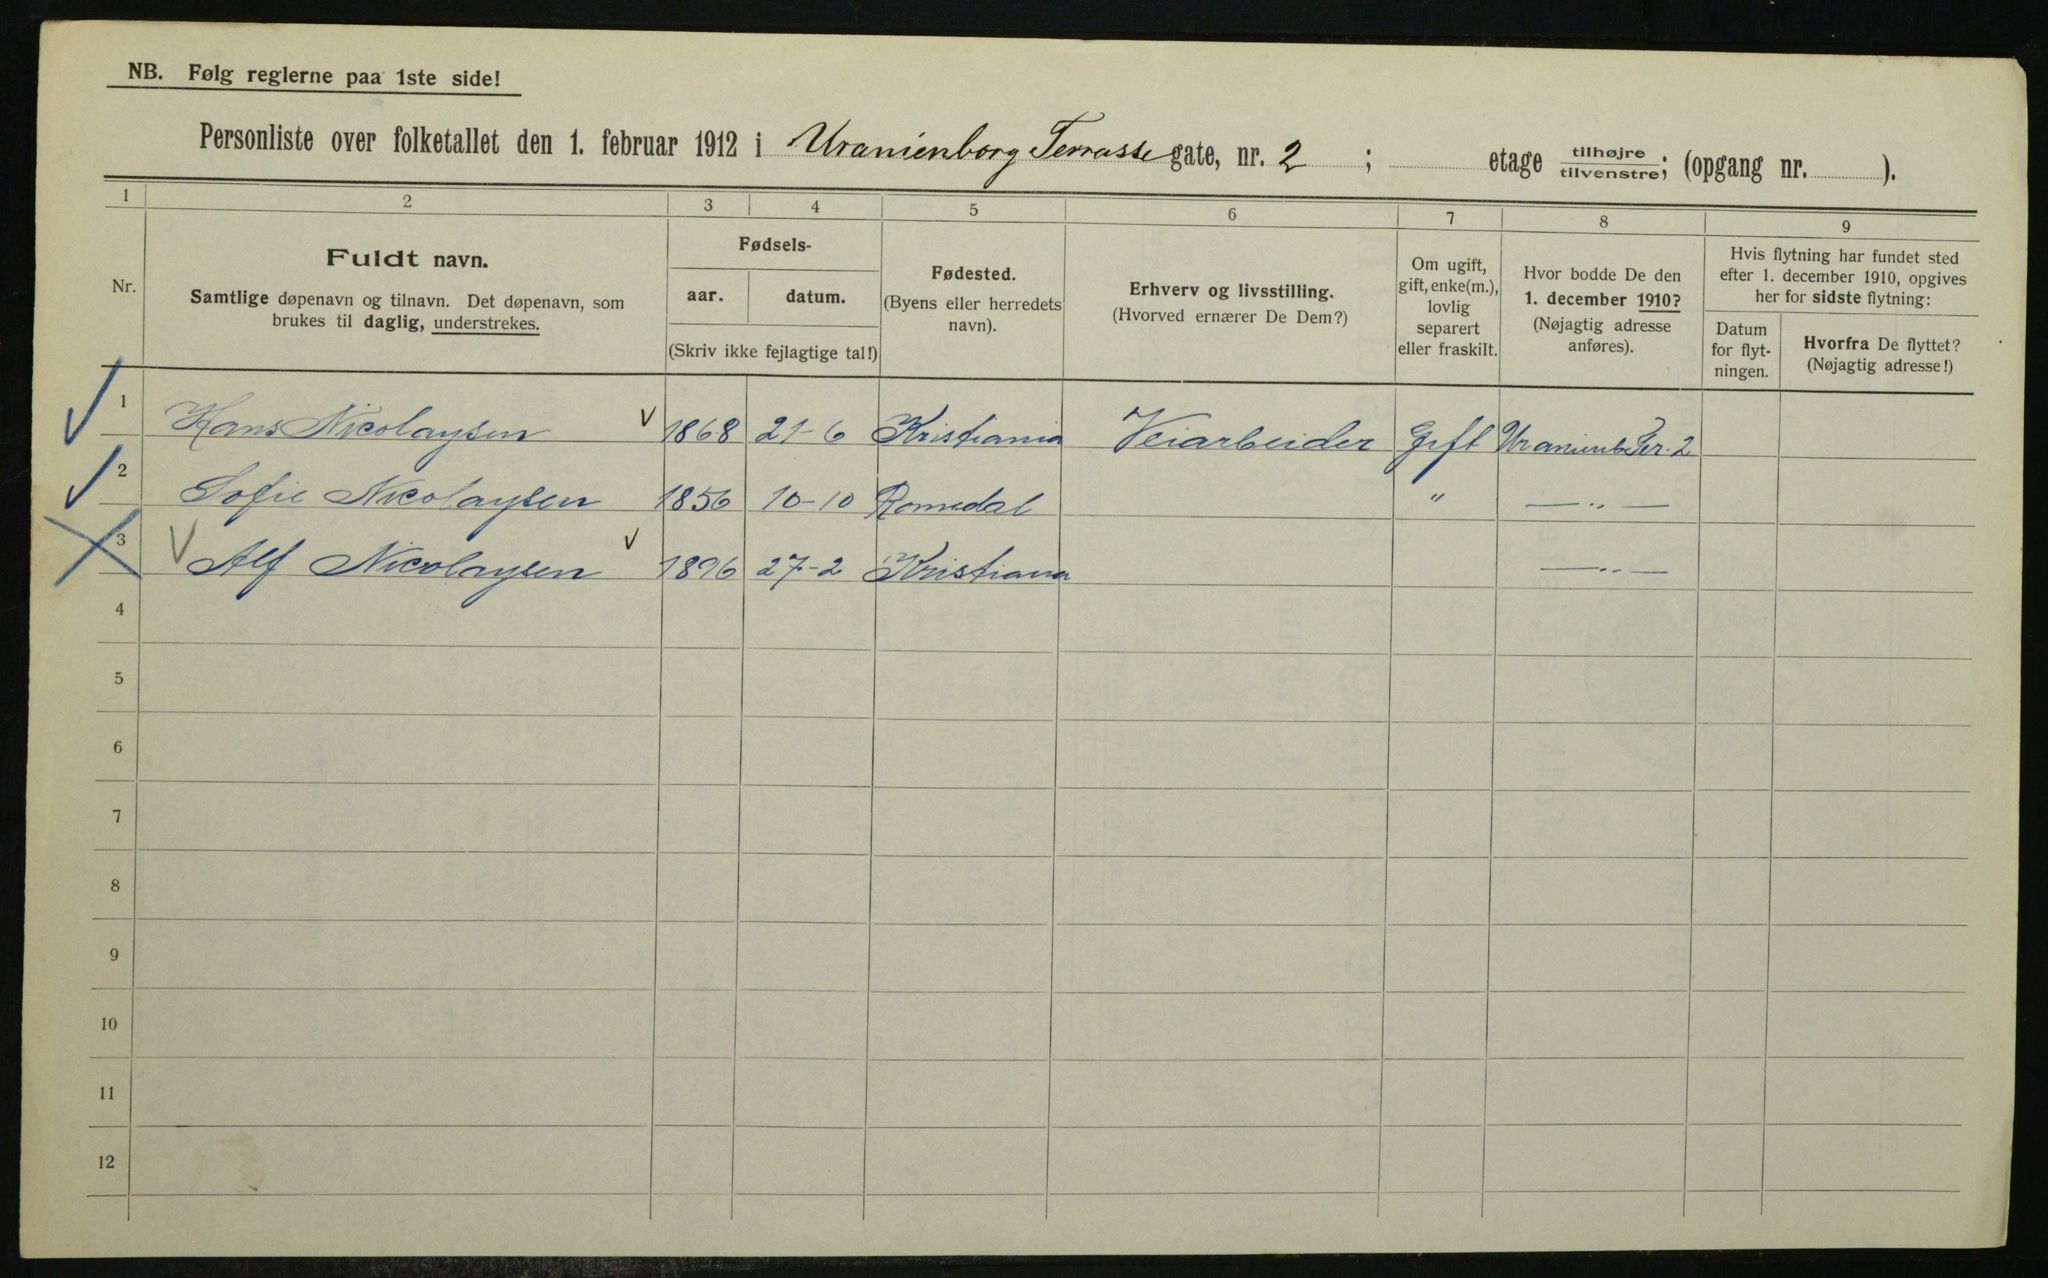 NB. Følg reglerne paa 1ste side!
Personliste over folketallet den 1. februar 1912 i Uranienborg Terrasse gate, nr. 2 ; etage tilhøjre tilvenstre; (opgang nr. ).
1 2 3 4 5 6 7 8 9
Nr.
Fuldt navn.
Samtlige døpenavn og tilnavn. Det døpenavn, som
brukes til daglig, understrekes.
Fødsels-
aar. datum.
(Skriv ikke fejlagtige tal!)
Fødested.
(Byens eller herredets
navn).
Erhverv og livsstilling.
(Hvorved ernærer De Dem?)
Om ugift,
gift, enke(m.),
lovlig
separert
eller fraskilt.
Hvor bodde De den
1. december 1910?
(Nøjagtig adresse
anføres).
Hvis flytning har fundet sted
efter 1. december 1910, opgives
her for sidste flytning:
Datum
for flyt-
ningen.
Hvorfra De flyttet?
(Nøjagtig adresse!)
1 Hans Nicolaysen 1868 21-6 Kristiania Veiarbeider Gift Uranienb Ter. 2
2 Sofie Nicolaysen 1856 10-10 Romedal " — " —
3 Alf Nicolaysen 1896 27-2 Kristiana — " —
4
5
6
7
8
9
10
11
12